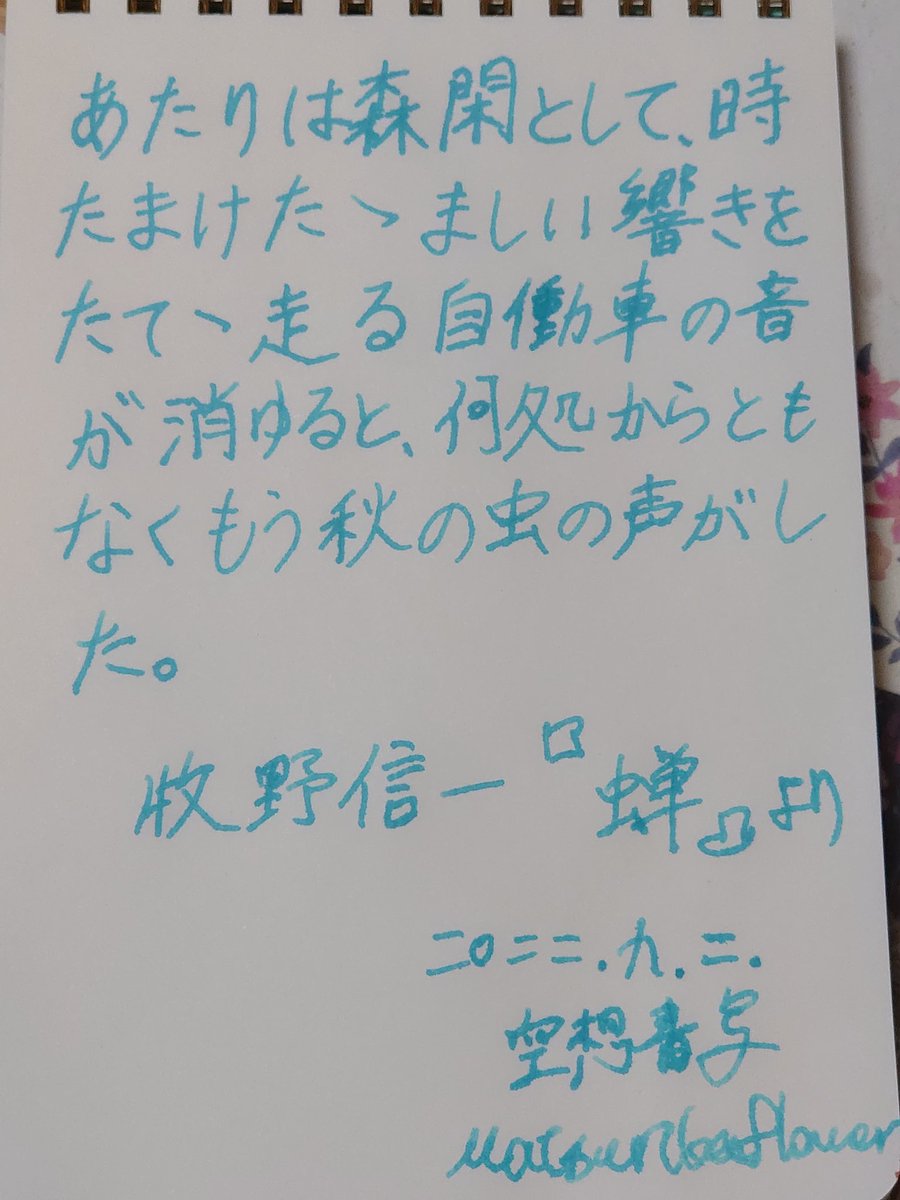 あたりは森閑として、時
たまけたゝましい響きを
たてゝ走る自働車の音
が消ゆると、何処からとも
なくもう秋の虫の声がし
た。
牧野信一『蝉』より
二〇二二.九.二.
空想書写